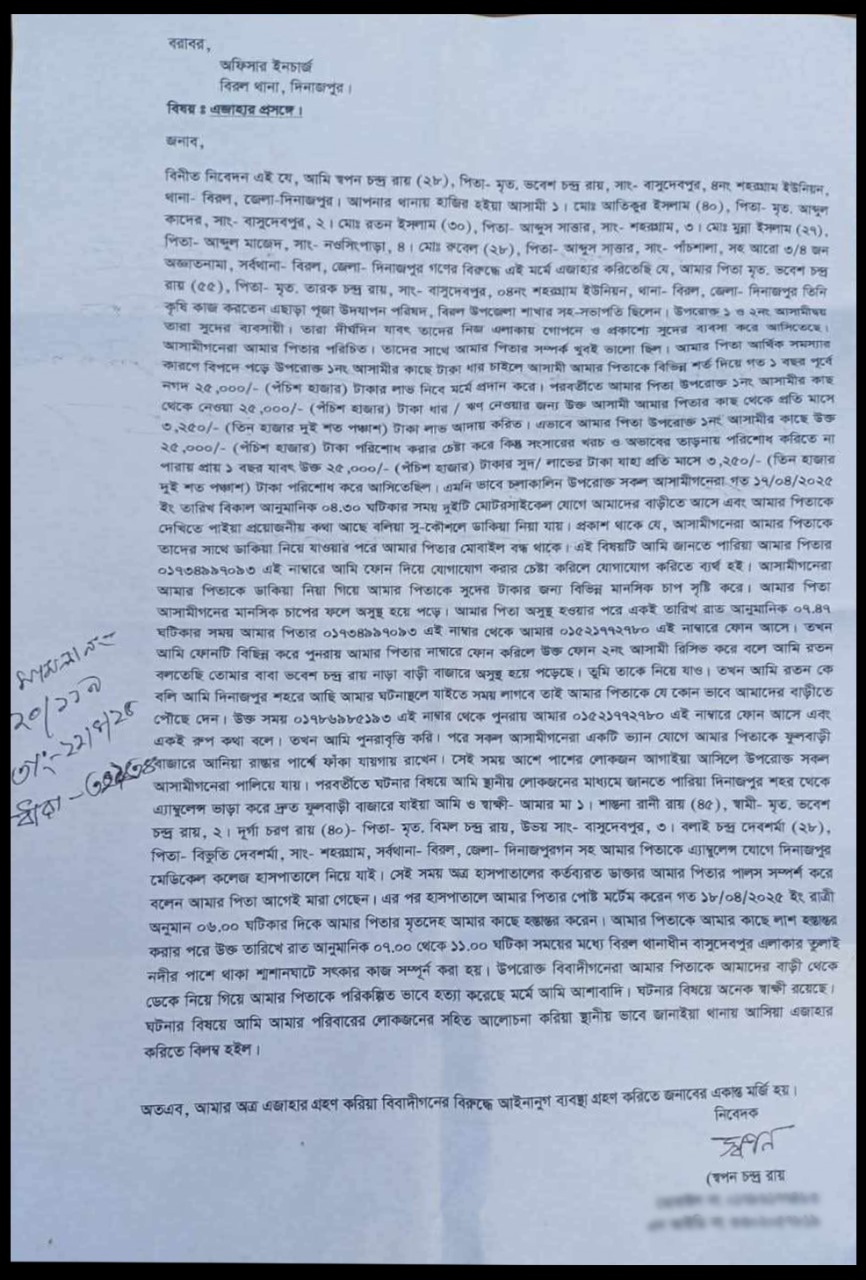 বরাবর,
অফিসার ইনচার্জ
বিরল থানা, দিনাজপুর।
বিষয় ঃ এজাহার প্রসঙ্গে।
জনাব,
বিনীত নিবেদন এই যে, আমি স্বপন চন্দ্র রায় (২৮), পিতা- মৃত. ভবেশ চন্দ্র রায়, সাং- বাসুদেবপুর, ৪নং শহরগ্রাম ইউনিয়ন,
থানা- বিরল, জেলা-দিনাজপুর। আপনার থানায় হাজির হইয়া আসামী ১। মোঃ আতিকুর ইসলাম (৪০), পিতা- মৃত. আব্দুল
কাদের, সাং- বাসুদেবপুর, ২। মোঃ রতন ইসলাম (৩০), পিতা- আব্দুস সাত্তার, সাং- শহরগ্রাম, ৩। মোঃ মুন্না ইসলাম (২৭),
পিতা- আব্দুল মাজেদ, সাং- নওসিংপাড়া, ৪। মোঃ রুবেল (২৮), পিতা- আব্দুস সাত্তার, সাং- পাঁচশালা, সহ আরো ৩/৪ জন
অজ্ঞাতনামা, সর্বথানা- বিরল, জেলা- দিনাজপুর গণের বিরুদ্ধে এই মর্মে এজাহার করিতেছি যে, আমার পিতা মৃত. ভবেশ চন্দ্র
রায় (৫৫), পিতা- মৃত. তারক চন্দ্র রায়, সাং- বাসুদেবপুর, ০৪নং শহরগ্রাম ইউনিয়ন, থানা- বিরল, জেলা- দিনাজপুর তিনি
কৃষি কাজ করতেন এছাড়া পূজা উদযাপন পরিষদ, বিরল উপজেলা শাখার সহ-সভাপতি ছিলেন। উপরোক্ত ১ ও ২নং আসামীদ্বয়
তারা সুদের ব্যবসায়ী। তারা দীর্ঘদিন যাবৎ তাদের নিজ এলাকায় গোপনে ও প্রকাশ্যে সুদের ব্যবসা করে আসিতেছে।
আসামীগনেরা আমার পিতার পরিচিত। তাদের সাথে আমার পিতার সম্পর্ক খুবই ভালো ছিল। আমার পিতা আর্থিক সমস্যার
কারণে বিপদে পড়ে উপরোক্ত ১নং আসামীর কাছে টাকা ধার চাইলে আসামী আমার পিতাকে বিভিন্ন শর্ত দিয়ে গত ১ বছর পূর্বে
নগদ ২৫,০০০/- (পঁচিশ হাজার) টাকার লাভ নিবে মর্মে প্রদান করে। পরবর্তীতে আমার পিতা উপরোক্ত ১নং আসামীর কাছ
থেকে নেওয়া ২৫,০০০/- (পঁচিশ হাজার) টাকা ধার / ঋণ নেওয়ার জন্য উক্ত আসামী আমার পিতার কাছ থেকে প্রতি মাসে
৩,২৫০/- (তিন হাজার দুই শত পঞ্চাশ) টাকা লাভ আদায় করিত। এভাবে আমার পিতা উপরোক্ত ১নং আসামীর কাছে উক্ত
২৫,০০০/- (পঁচিশ হাজার) টাকা পরিশোধ করার চেষ্টা করে কিন্তু সংসারের খরচ ও অভাবের তাড়নায় পরিশোধ করিতে না
পারায় প্রায় ১ বছর যাবৎ উক্ত ২৫,০০০/- (পঁচিশ হাজার) টাকার সুদ/ লাভের টাকা যাহা প্রতি মাসে ৩,২৫০/- (তিন হাজার
দুই শত পঞ্চাশ) টাকা পরিশোধ করে আসিতেছিল। এমনি ভাবে চলাকালিন উপরোক্ত সকল আসামীগনেরা গত ১৭/০৪/২০২৫
ইং তারিখ বিকাল আনুমানিক ০৪.৩০ ঘটিকার সময় দুইটি মোটরসাইকেল যোগে আমাদের বাড়ীতে আসে এবং আমার পিতাকে
দেখিতে পাইয়া প্রয়োজনীয় কথা আছে বলিয়া সু-কৌশলে ডাকিয়া নিয়া যায়। প্রকাশ থাকে যে, আসামীগনেরা আমার পিতাকে
তাদের সাথে ডাকিয়া নিয়ে যাওয়ার পরে আমার পিতার মোবাইল বন্ধ থাকে। এই বিষয়টি আমি জানতে পারিয়া আমার পিতার
০১৭৩৪৯৯৭০৯৩ এই নাম্বারে আমি ফোন দিয়ে যোগাযোগ করার চেষ্টা করিলে যোগাযোগ করিতে ব্যর্থ হই। আসামীগনেরা
আমার পিতাকে ডাকিয়া নিয়া গিয়ে আমার পিতাকে সুদের টাকার জন্য বিভিন্ন মানসিক চাপ সৃষ্টি করে। আমার পিতা
আসামীগনের মানসিক চাপের ফলে অসুস্থ হয়ে পড়ে। আমার পিতা অসুস্থ হওয়ার পরে একই তারিখ রাত আনুমানিক ০৭.৪৭
ঘটিকার সময় আমার পিতার ০১৭৩৪৯৯৭০৯৩ এই নাম্বার থেকে আমার ০১৫২১৭৭২৭৮০ এই নাম্বারে ফোন আসে। তখন
আমি ফোনটি বিছিন্ন করে পুনরায় আমার পিতার নাম্বারে ফোন করিলে উক্ত ফোন ২নং আসামী রিসিভ করে বলে আমি রতন
বলতেছি তোমার বাবা ভবেশ চন্দ্র রায় নাড়া বাড়ী বাজারে অসুস্থ হয়ে পড়েছে। তুমি তাকে নিয়ে যাও। তখন আমি রতন কে
বলি আমি দিনাজপুর শহরে আছি আমার ঘটনাস্থলে যাইতে সময় লাগবে তাই আমার পিতাকে যে কোন ভাবে আমাদের বাড়ীতে
পৌছে দেন। উক্ত সময় ০১৭৮৬৯৮৫১৯৩ এই নাম্বার থেকে পুনরায় আমার ০১৫২১৭৭২৭৮০ এই নাম্বারে ফোন আসে এবং
একই রুপ কথা বলে। তখন আমি পুনরাবৃত্তি করি। পরে সকল আসামীগনেরা একটি ভ্যান যোগে আমার পিতাকে ফুলবাড়ী
বাজারে আনিয়া রাস্তার পার্শে ফাঁকা যায়গায় রাখেন। সেই সময় আশে পাশের লোকজন আগাইয়া আসিলে উপরোক্ত সকল
আসামীগনেরা পালিয়ে যায়। পরবর্তীতে ঘটনার বিষয়ে আমি স্থানীয় লোকজনের মাধ্যমে জানতে পারিয়া দিনাজপুর শহর থেকে
এ্যাম্বুলেন্স ভাড়া করে দ্রুত ফুলবাড়ী বাজারে যাইয়া আমি ও স্বাক্ষী- আমার মা ১। শান্তনা রানী রায় (৪৫), স্বামী- মৃত. ভবেশ
চন্দ্র রায়, ২। দূর্গা চরণ রায় (৪০)- পিতা- মৃত. বিমল চন্দ্র রায়, উভয় সাং- বাসুদেবপুর, ৩। বলাই চন্দ্র দেবশর্মা (২৮),
পিতা- বিভুতি দেবশর্মা, সাং- শহরগ্রাম, সর্বথানা- বিরল, জেলা- দিনাজপুরগন সহ আমার পিতাকে এ্যাম্বুলেন্স যোগে দিনাজপুর
মেডিকেল কলেজ হাসপাতালে নিয়ে যাই। সেই সময় অত্র হাসপাতালের কর্তব্যরত ডাক্তার আমার পিতার পালস সম্পর্শ করে
বলেন আমার পিতা আগেই মারা গেছেন। এর পর হাসপাতালে আমার পিতার পোষ্ট মর্টেম করেন গত ১৮/০৪/২০২৫ ইং রাত্রী
অনুমান ০৬.০০ ঘটিকার দিকে আমার পিতার মৃতদেহ আমার কাছে হস্তান্তর করেন। আমার পিতাকে আমার কাছে লাশ হস্তান্তর
করার পরে উক্ত তারিখে রাত আনুমানিক ০৭.০০ থেকে ১১.০০ ঘটিকা সময়ের মধ্যে বিরল থানাধীন বাসুদেবপুর এলাকার তুলাই
নদীর পাশে থাকা শ্মশানঘাটে সৎকার কাজ সম্পূর্ন করা হয়। উপরোক্ত বিবাদীগনেরা আমার পিতাকে আমাদের বাড়ী থেকে
ডেকে নিয়ে গিয়ে আমার পিতাকে পরিকল্পিত ভাবে হত্যা করেছে মর্মে আমি আশাবাদি। ঘটনার বিষয়ে অনেক স্বাক্ষী রয়েছে।
ঘটনার বিষয়ে আমি আমার পরিবারের লোকজনের সহিত আলোচনা করিয়া স্থানীয় ভাবে জানাইয়া থানায় আসিয়া এজাহার
করিতে বিলম্ব হইল।
অতএব, আমার অত্র এজাহার গ্রহণ করিয়া বিবাদীগনের বিরুদ্ধে আইনানুগ ব্যবস্থা গ্রহণ করিতে জনাবের একান্ত মর্জি হয়।
নিবেদক
স্বপন
(স্বপন চন্দ্র রায়
মামলা নং-
তাং-
ধারা-